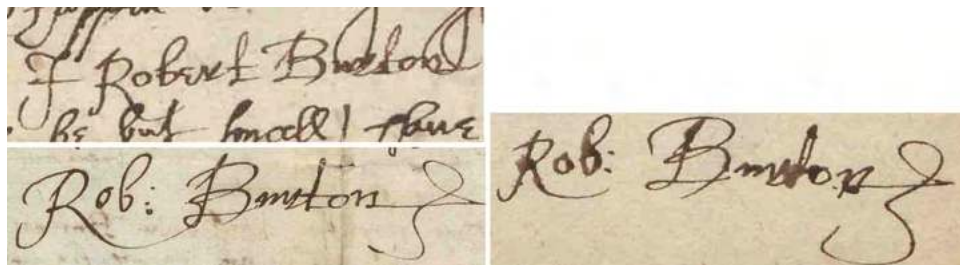 I Robert Burton
he but small I have
Rob: Burton
Rob: Burton